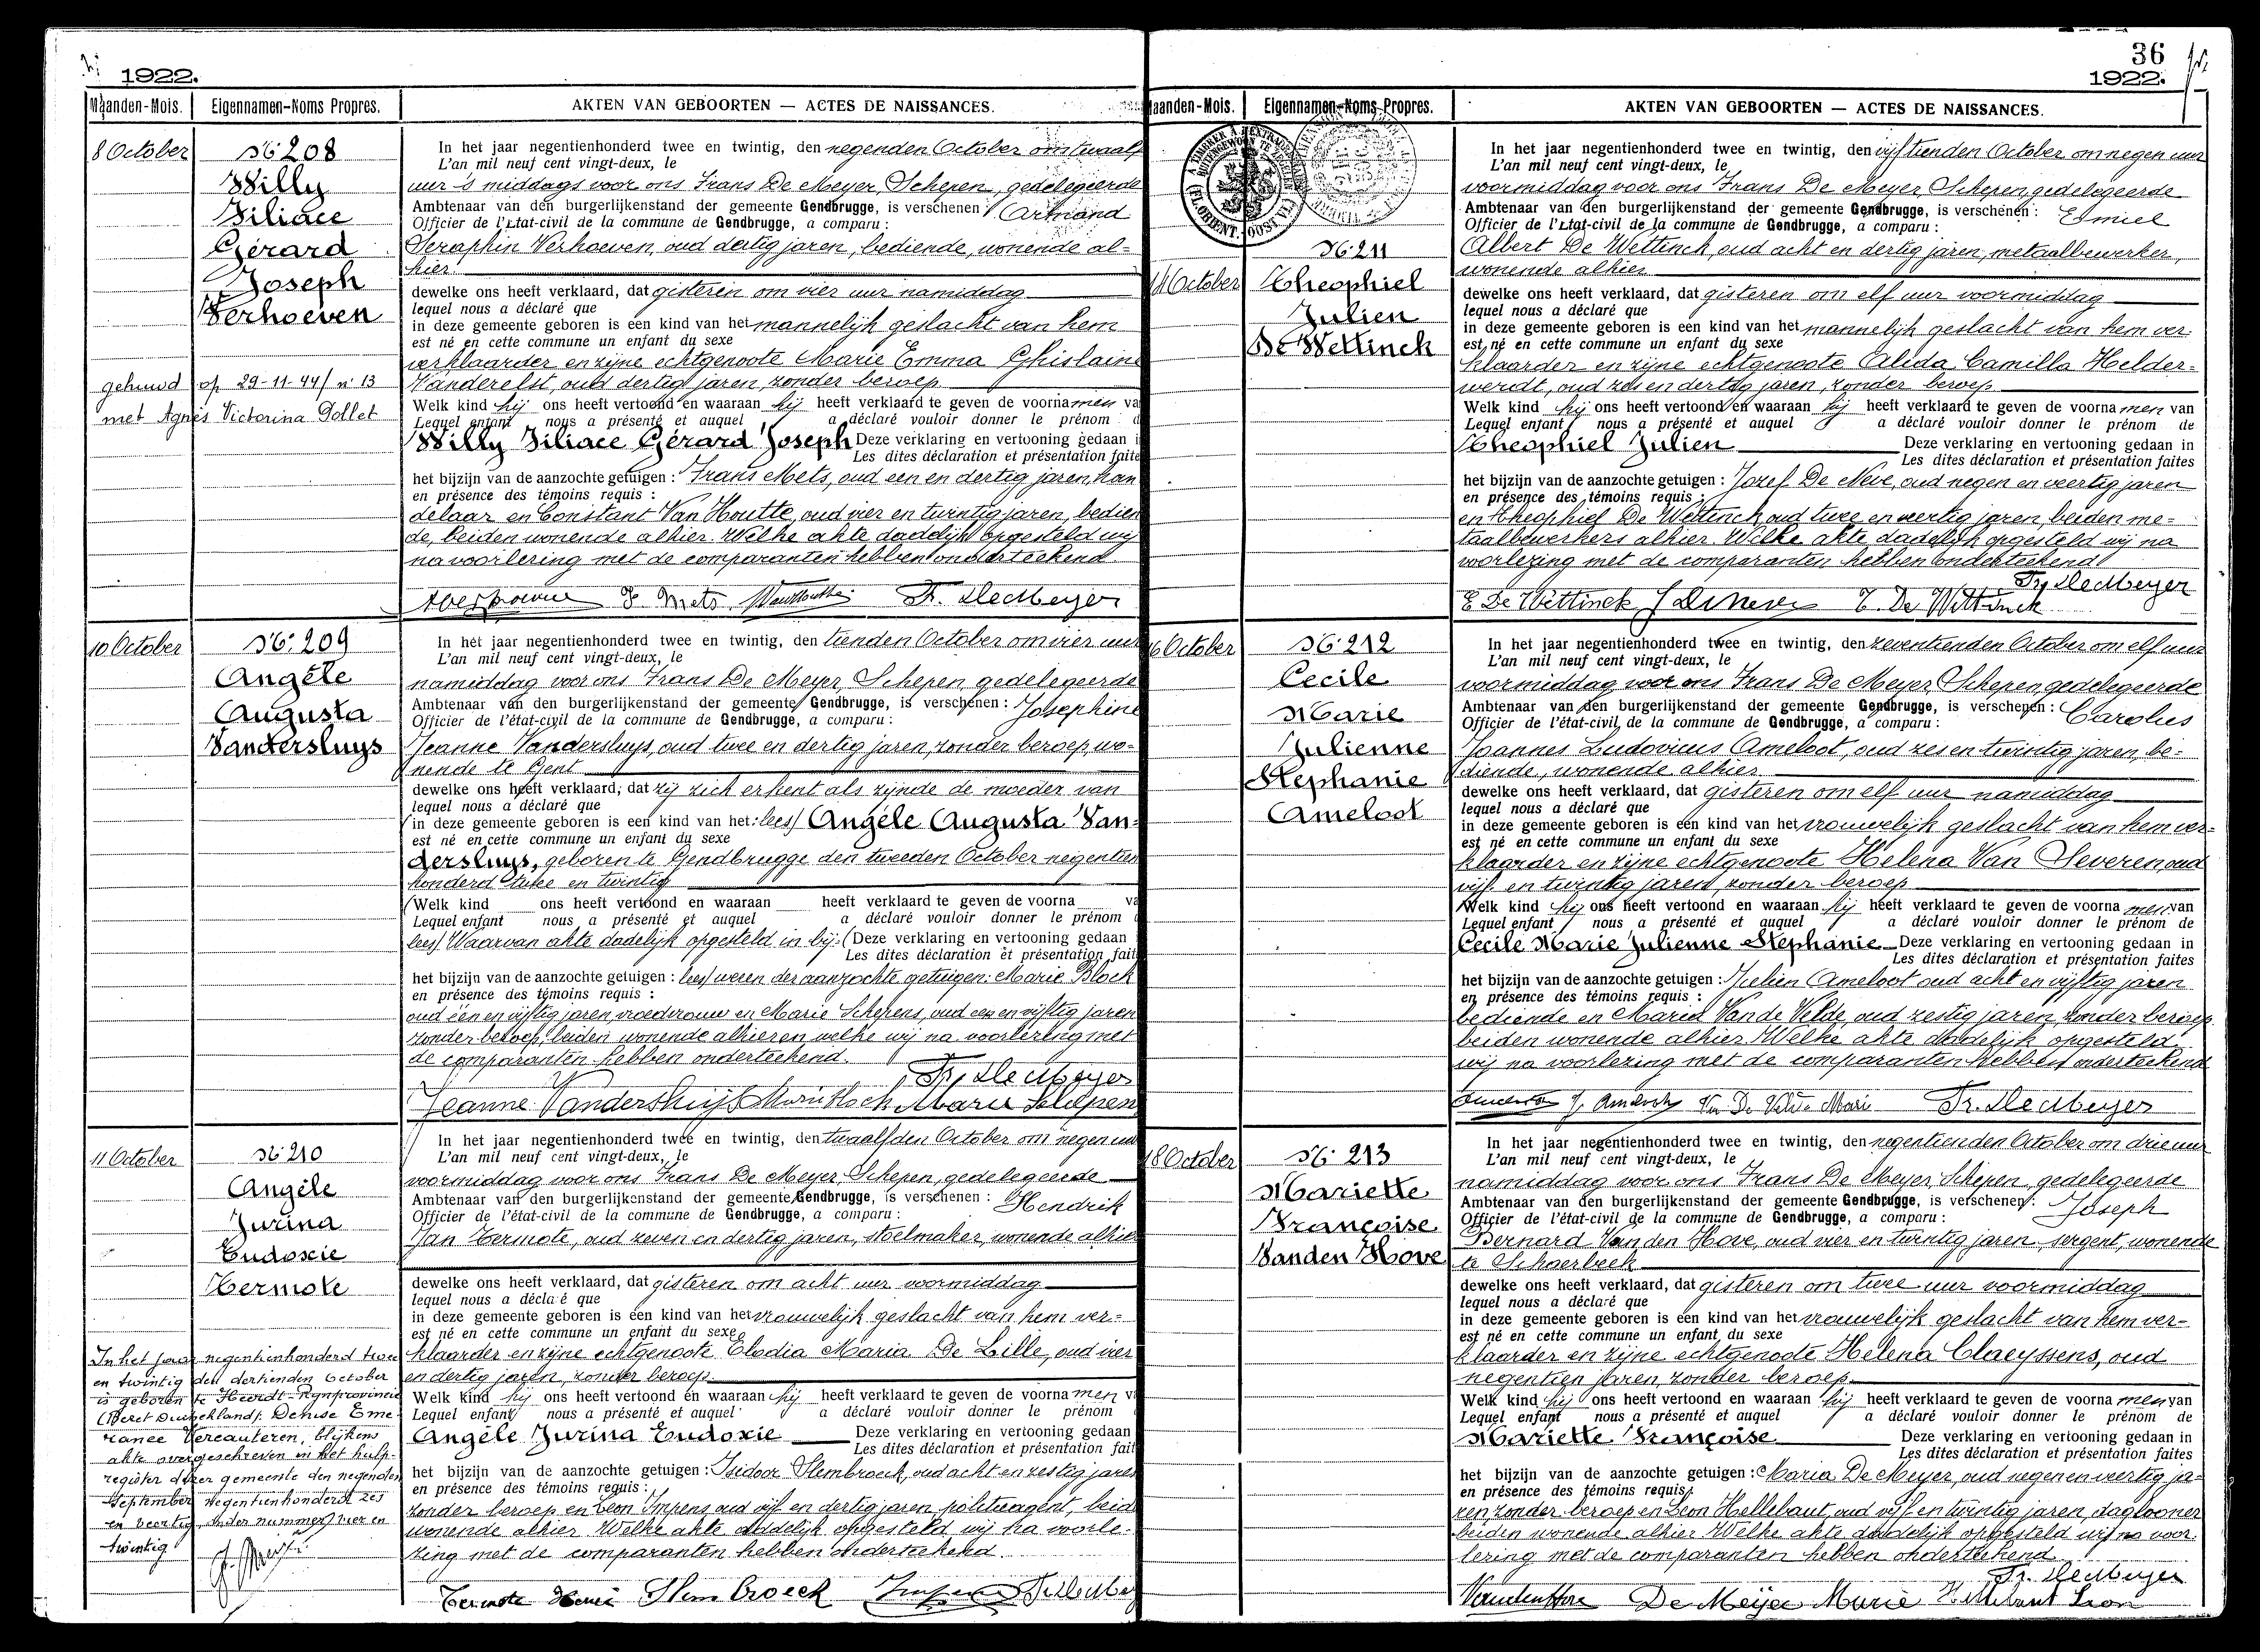 1922.
Maanden-Mois. Eigennamen-Noms Propres. AKTEN VAN GEBOORTEN — ACTES DE NAISSANCES.
8 October
N° 208
Willy
Filiace
Gérard
Joseph
Verhoeven
gehuwd op 29-11-44 / n° 13
met Agnès Victorina Dollet
In het jaar negentienhonderd twee en twintig, den negenden October om twaalf
L'an mil neuf cent vingt-deux, le
uur 's middags voor ons Frans De Meyer, Schepen, gedelegeerde
Ambtenaar van den burgerlijkenstand der gemeente Gendbrugge, is verschenen : Armand
Officier de l'état-civil de la commune de Gendbrugge, a comparu :
Seraphin Verhoeven, oud dertig jaren, bediende, wonende al=
hier
dewelke ons heeft verklaard, dat gisteren om vier uur namiddag
lequel nous a déclaré que
in deze gemeente geboren is een kind van het mannelijk geslacht van hem
est né en cette commune un enfant du sexe
verklaarder en zijne echtgenoote Marie Emma Ghislaine
Vanderelst, oud dertig jaren, zonder beroep
Welk kind hij ons heeft vertoond en waaraan hij heeft verklaard te geven de voornamen va
Lequel enfant nous a présenté et auquel a déclaré vouloir donner le prénom d
Willy Filiace Gérard Joseph Deze verklaring en vertooning gedaan i
Les dites déclaration et présentation faite
het bijzijn van de aanzochte getuigen : Frans Mets, oud een en dertig jaren, han
en présence des témoins requis :
delaar en Constant Van Houtte, oud vier en twintig jaren, bedien
de, beiden wonende alhier. Welke akte dadelijk opgesteld wij
na voorlezing met de comparanten hebben onderteekend
F. Mets Fr. DeMeyer
10 October
N° 209
Angèle
Augusta
Vandersluys
In het jaar negentienhonderd twee en twintig, den tienden October om vier uur
L'an mil neuf cent vingt-deux, le
namiddag voor ons Frans De Meyer, Schepen, gedelegeerde
Ambtenaar van den burgerlijkenstand der gemeente Gendbrugge, is verschenen : Josephine
Officier de l'état-civil de la commune de Gendbrugge, a comparu :
Jeanne Vandersluys, oud twee en dertig jaren, zonder beroep, wo=
nende te Gent
dewelke ons heeft verklaard, dat zij zich erkent als zijnde de moeder van
lequel nous a déclaré que
(in deze gemeente geboren is een kind van het: lees) Angèle Augusta Van=
est né en cette commune un enfant du sexe
dersluys, geboren te Gendbrugge den tweeden October negentien
honderd twee en twintig
(Welk kind ons heeft vertoond en waaraan heeft verklaard te geven de voorna va
Lequel enfant nous a présenté et auquel a déclaré vouloir donner le prénom d
lees) Waarvan akte dadelijk opgesteld in bij= (Deze verklaring en vertooning gedaan
Les dites déclaration et présentation fait
het bijzijn van de aanzochte getuigen : lees) wezen der aanzochte getuigen: Marie Bloch
en présence des témoins requis :
oud één en vijftig jaren, vroedvrouw en Marie Schepens, oud een en vijftig jaren
zonder beroep, beiden wonende alhier en welke wij na voorlezing met
de comparanten hebben onderteekend.
Fr. DeMeyer
Jeanne Vandersluys Marie Bloch Marie Schepen
11 October
N° 210
Angèle
Jurina
Eudoxie
Termote
In het jaar negentienhonderd twee
en twintig den dertienden October
is geboren te Heerdt-Rynprovincie
(Bezet Duitschland): Denise Eme-
rance Vercauteren, blijkens
akte overgeschreven in het hulp-
register dezer gemeente den negenden
September negentienhonderd zes
en veertig, onder nummer vier en
twintig
In het jaar negentienhonderd twee en twintig, den twaalfden October om negen uur
L'an mil neuf cent vingt-deux, le
voormiddag voor ons Frans De Meyer, Schepen, gedelegeerde
Ambtenaar van den burgerlijkenstand der gemeente Gendbrugge, is verschenen : Hendrik
Officier de l'état-civil de la commune de Gendbrugge, a comparu :
Jan Termote, oud zeven en dertig jaren, stoelmaker, wonende alhier
dewelke ons heeft verklaard, dat gisteren om acht uur voormiddag
lequel nous a déclaré que
in deze gemeente geboren is een kind van het vrouwelijk geslacht van hem ver=
est né en cette commune un enfant du sexe
klaarder en zijne echtgenoote Elodia Maria De Lille, oud vier
en dertig jaren, zonder beroep
Welk kind hij ons heeft vertoond en waaraan hij heeft verklaard te geven de voornamen v
Lequel enfant nous a présenté et auquel a déclaré vouloir donner le prénom
Angèle Jurina Eudoxie Deze verklaring en vertooning gedaan
Les dites déclaration et présentation fait
het bijzijn van de aanzochte getuigen : Isidoor Slembroeck, oud acht en zestig jaren
en présence des témoins requis :
zonder beroep en Leon Impens, oud vijf en dertig jaren politieagent, beid
wonende alhier. Welke akte dadelijk opgesteld wij na voorle-
zing met de comparanten hebben onderteekend.
Termote Henri Slembroeck
36
1922.
Maanden-Mois. Eigennamen-Noms Propres. AKTEN VAN GEBOORTEN — ACTES DE NAISSANCES.
N° 211
14 October
Theophiel
Julien
De Wettinck
In het jaar negentienhonderd twee en twintig, den vijftienden October om negen uur
L'an mil neuf cent vingt-deux, le
voormiddag voor ons Frans De Meyer, Schepen, gedelegeerde
Ambtenaar van den burgerlijkenstand der gemeente Gendbrugge, is verschenen : Emiel
Officier de l'état-civil de la commune de Gendbrugge, a comparu :
Albert De Wettinck, oud acht en dertig jaren, metaalbewerker,
wonende alhier
dewelke ons heeft verklaard, dat gisteren om elf uur voormiddag
lequel nous a déclaré que
in deze gemeente geboren is een kind van het mannelijk geslacht van hem ver-
est né en cette commune un enfant du sexe
klaarder en zijne echtgenoote Alida Camilla Helder=
weirdt, oud zes en dertig jaren, zonder beroep
Welk kind hij ons heeft vertoond en waaraan hij heeft verklaard te geven de voornamen van
Lequel enfant nous a présenté et auquel a déclaré vouloir donner le prénom de
Theophiel Julien Deze verklaring en vertooning gedaan in
Les dites déclaration et présentation faites
het bijzijn van de aanzochte getuigen : Jozef De Neve, oud negen en veertig jaren
en présence des témoins requis :
en Theophiel De Wettinck, oud twee en veertig jaren, beiden me=
taalbewerkers alhier. Welke akte dadelijk opgesteld wij na
voorlezing met de comparanten hebben onderteekend
Fr. DeMeyer
E De Wettinck J DeNeve T. De Wettinck
16 October
N° 212
Cecile
Marie
Julienne
Stephanie
Ameloot
In het jaar negentienhonderd twee en twintig, den zeventienden October om elf uur
L'an mil neuf cent vingt-deux, le
voormiddag voor ons Frans De Meyer, Schepen, gedelegeerde
Ambtenaar van den burgerlijkenstand der gemeente Gendbrugge, is verschenen : Carolus
Officier de l'état-civil de la commune de Gendbrugge, a comparu :
Joannes Ludovicus Ameloot, oud zes en twintig jaren, be=
diende, wonende alhier
dewelke ons heeft verklaard, dat gisteren om elf uur namiddag
lequel nous a déclaré que
in deze gemeente geboren is een kind van het vrouwelijk geslacht van hem ver=
est né en cette commune un enfant du sexe
klaarder en zijne echtgenoote Helena Van Severen, oud
vijf en twintig jaren, zonder beroep
Welk kind hij ons heeft vertoond en waaraan hij heeft verklaard te geven de voornamen van
Lequel enfant nous a présenté et auquel a déclaré vouloir donner le prénom de
Cecile Marie Julienne Stephanie Deze verklaring en vertooning gedaan in
Les dites déclaration et présentation faites
het bijzijn van de aanzochte getuigen : Julien Ameloot oud acht en vijftig jaren
en présence des témoins requis :
bediende en Maria Van de Velde, oud zestig jaren, zonder beroep
beiden wonende alhier. Welke akte dadelijk opgesteld
wij na voorlezing met de comparanten hebben onderteekend
J. Ameloot Van De Velde Marie Fr. DeMeyer
18 October
N° 213
Mariette
Françoise
Vanden Hove
In het jaar negentienhonderd twee en twintig, den negentienden October om drie uur
L'an mil neuf cent vingt-deux, le
namiddag voor ons Frans De Meyer, Schepen, gedelegeerde
Ambtenaar van den burgerlijkenstand der gemeente Gendbrugge, is verschenen : Joseph
Officier de l'état-civil de la commune de Gendbrugge, a comparu :
Bernard Vanden Hove, oud vier en twintig jaren, sergent, wonende
te Schaerbeek
dewelke ons heeft verklaard, dat gisteren om twee uur voormiddag
lequel nous a déclaré que
in deze gemeente geboren is een kind van het vrouwelijk geslacht van hem ver-
est né en cette commune un enfant du sexe
klaarder en zijne echtgenoote Helena Claeyssens, oud
negentien jaren, zonder beroep
Welk kind hij ons heeft vertoond en waaraan hij heeft verklaard te geven de voornamen van
Lequel enfant nous a présenté et auquel a déclaré vouloir donner le prénom de
Mariette Françoise Deze verklaring en vertooning gedaan in
Les dites déclaration et présentation faites
het bijzijn van de aanzochte getuigen : Maria De Meyer, oud negen en veertig ja-
en présence des témoins requis :
ren, zonder beroep en Leon Hellebaut, oud vijf en twintig jaren, daglooner
beiden wonende alhier. Welke akte dadelijk opgesteld wij na voor-
lezing met de comparanten hebben onderteekend
Fr. DeMeyer
VandenHove De Meijer Marie Hellebaut Leon